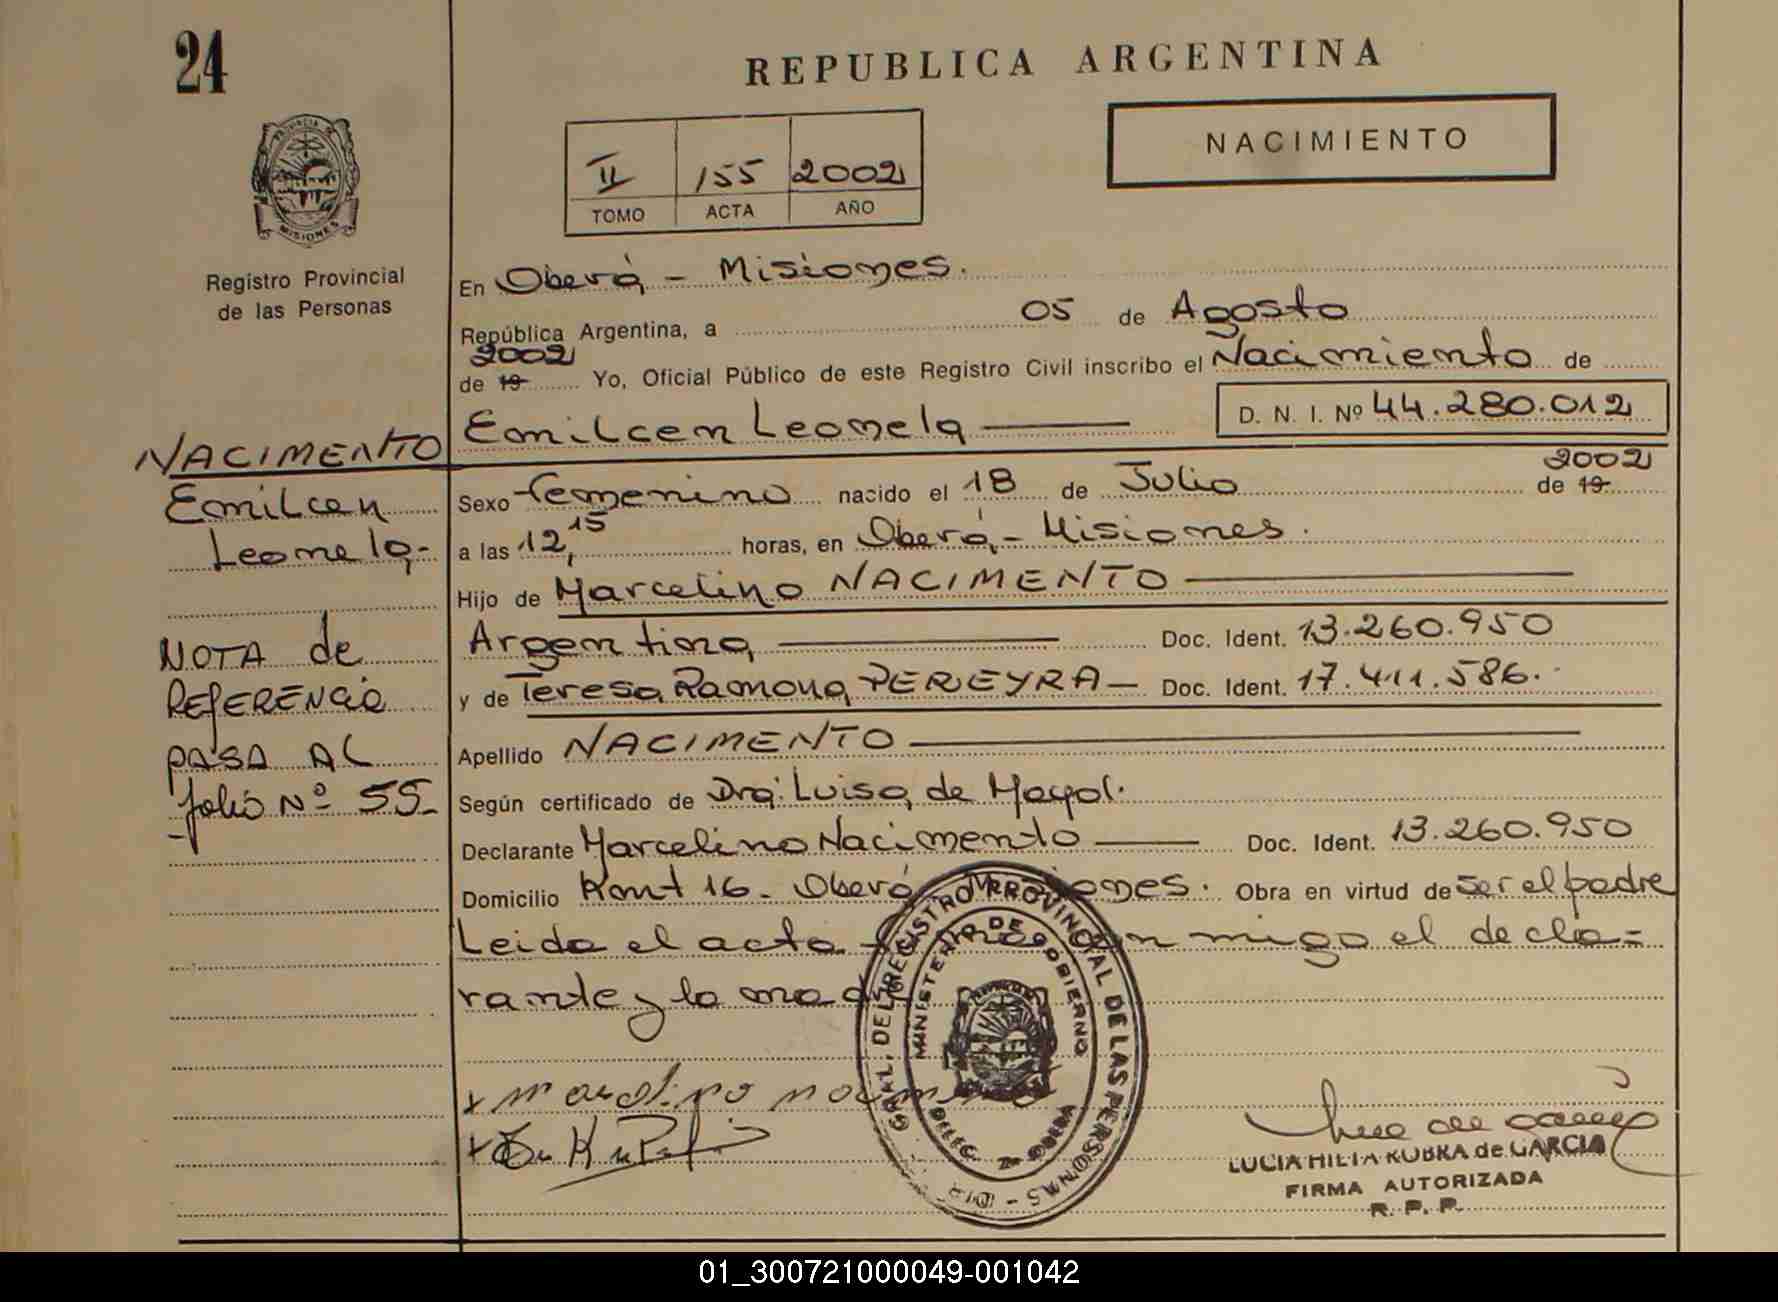 24
REPUBLICA ARGENTINA
NACIMIENTO
II 155 2002
TOMO ACTA AÑO
PROVINCIA DE
MISIONES
Registro Provincial
de las Personas
En Oberá - Misiones.
República Argentina, a 05 de Agosto
2002
de 19 Yo, Oficial Público de este Registro Civil inscribo el Nacimiento de
Emilcen Leonela D. N. I. Nº 44.280.012
NACIMENTO
Emilcen
Leonela-
NOTA de
REFERENCIA
PASA AL
folio Nº 55-
2002
Sexo femenino nacido el 18 de Julio de 19
a las 12,15 horas, en Oberá - Misiones.
Hijo de Marcelino NACIMENTO
Argentino, Doc. Ident. 13.260.950
y de Teresa Ramona PEREYRA - Doc. Ident. 17.411.586.
Apellido NACIMENTO
Según certificado de Dra: Luisa de Mayol.
Declarante Marcelino Nacimento Doc. Ident. 13.260.950
Domicilio Kont 16 - Oberá Misiones. Obra en virtud de ser el padre
Leida el acta con migo el decla=
rante y la mad
DIR. GRAL. DEL REGISTRO PROVINCIAL DE LAS PERSONAS
MINISTERIO DE GOBIERNO
DELEG. OBERA
LUCIA HILTA KUBKA de GARCIA
FIRMA AUTORIZADA
R. P. P.
01_300721000049-001042